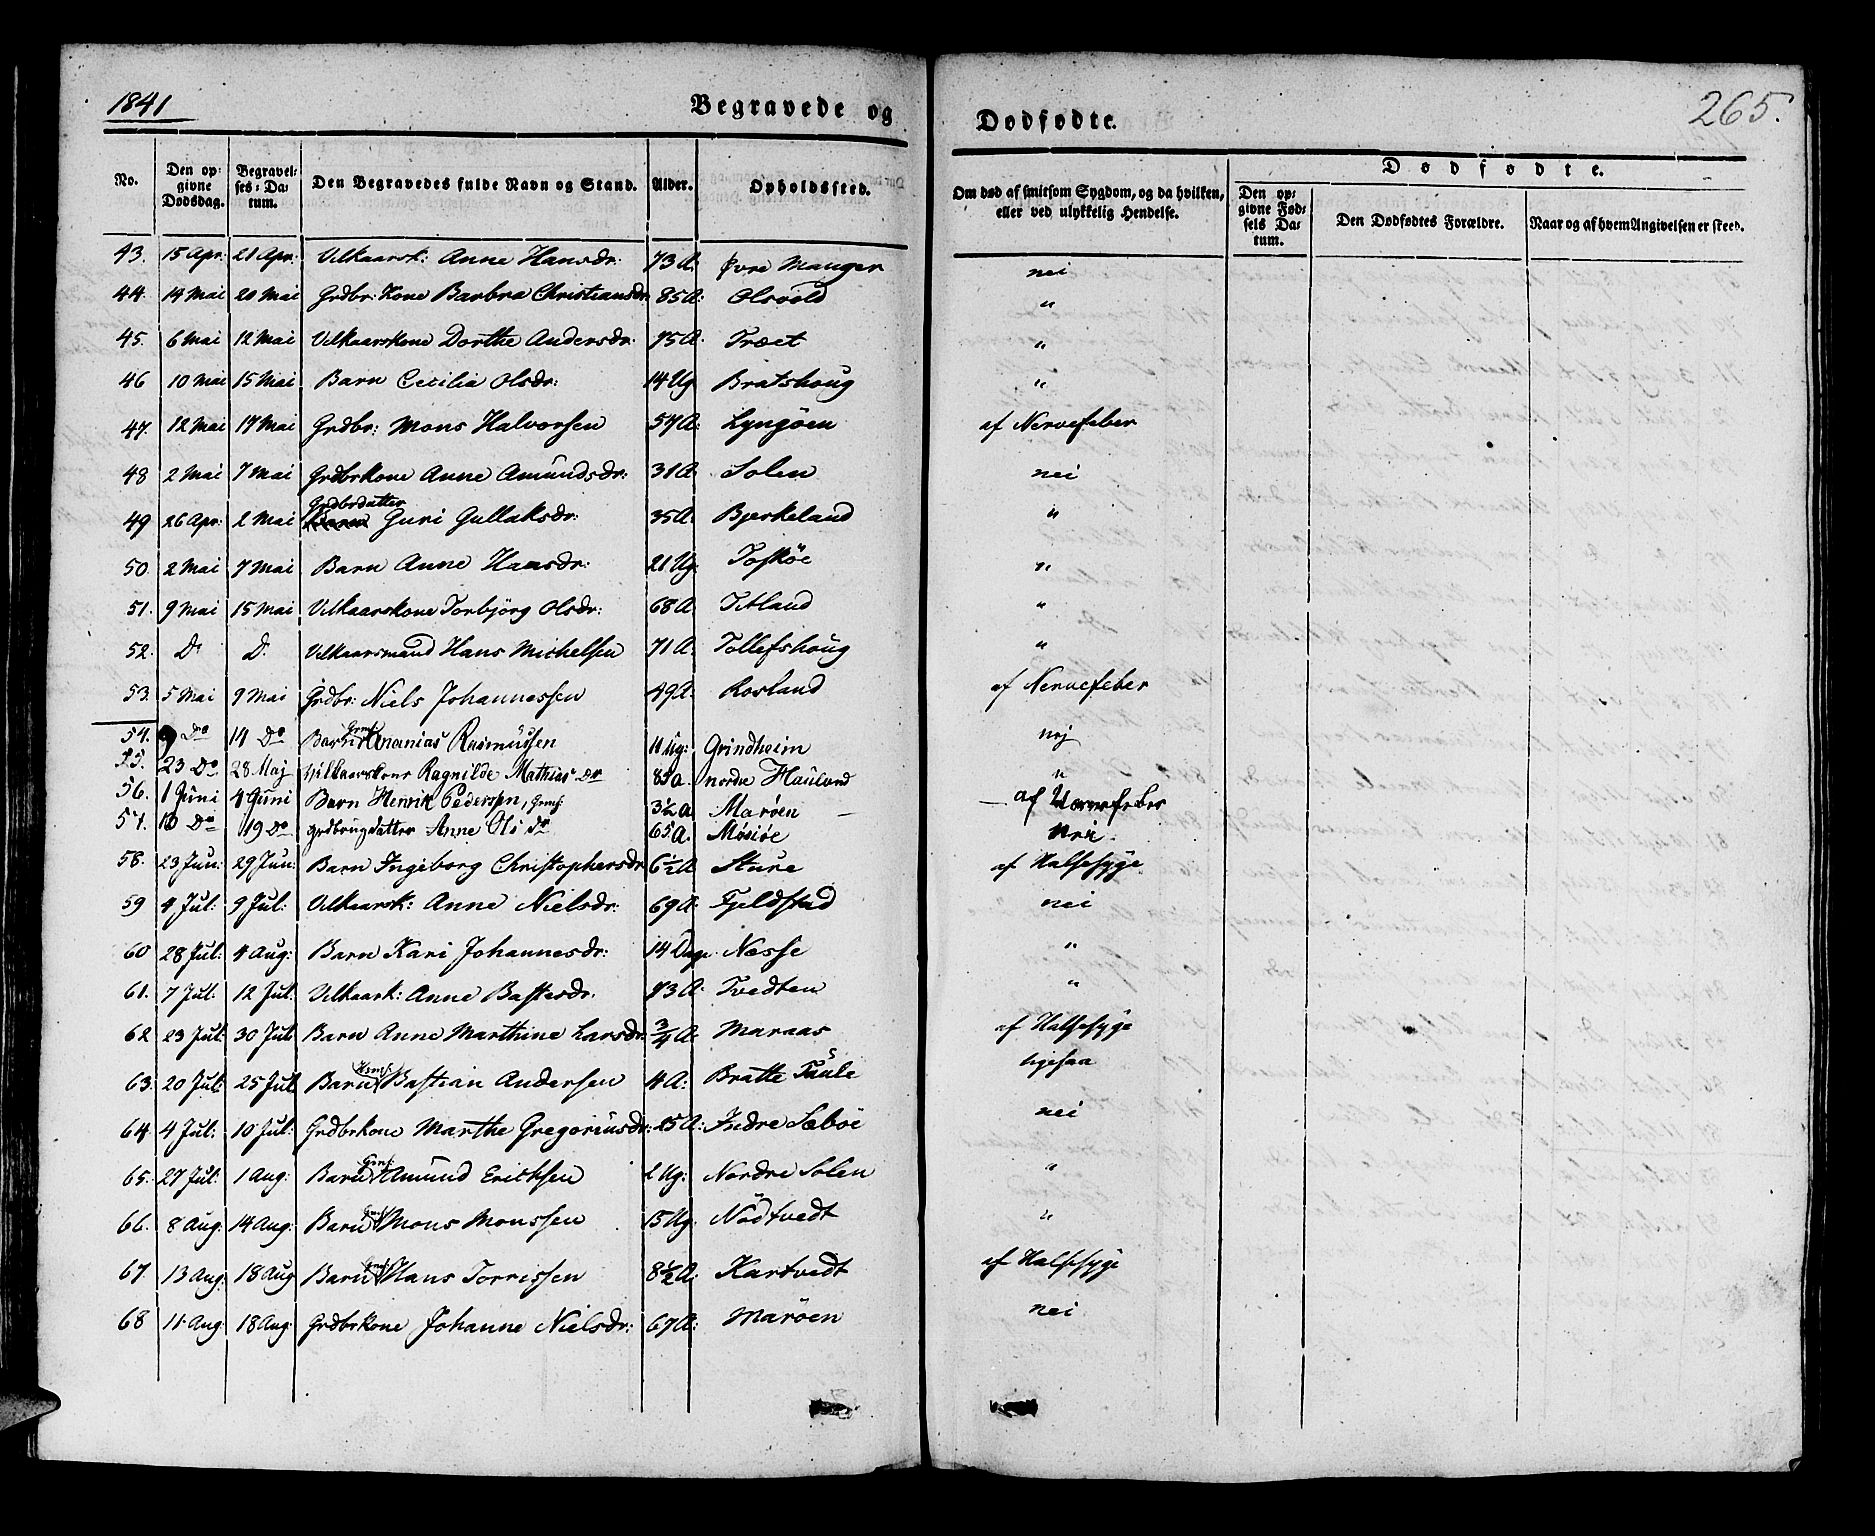 1841
Begravede og
Dødfødte.
265.
No. | Den opgivne Dødsdag. | Begravelses-Datum. | Den Begravedes fulde Navn og Stand. | Alder. | Opholdssted. | Om død af smitsom Sygdom, og da hvilken, eller ved ulykkelig Hendelse. | Dødfødte. | Den opgivne Fødsels Datum. | Den Dødfødtes Forældre. | Naar og af hvem Angivelsen er skeed.
43. 15 Apr. 21 Apr. Vilkaarsk: Anne Hansdr. 73 A. Øvre Manger nei
44. 14 Mai 20 Mai Grdbr: Kone Barbra Christiansdr 85 A: Olsvold "
45. 6 Mai 12 Mai Vilkaarskone Dorthe Andersdr. 75 A. Træet "
46 10 Mai 15 Mai Barn Cecilia Olsdr: 14 Ug Bratshoug "
47. 12 Mai 17 Mai Grdbr: Mons Halvorsen 57 A: Lyngöen af Nervefeber
48 2 Mai 7 Mai Grdbrkone Anne Amundsdr: 31 A. Solen nei
49 26 Apr: 2 Mai Grdbrdatter Guri Gullaksdr: 35 A: Bjerkeland "
50. 2 Mai 7 Mai Barn Anne Hansdr: 21 Ug. Toskөe "
51. 9 Mai 15 Mai Vilkaarskone Torbjörg Olsdr: 68 A. Titland "
52. Do D. Vilkaarsmand Hans Michelsen 71 A: Tollefshoug "
53. 5 Mai 9 Mai Grdbr: Niels Johannessen 49 A. Rosland af Nervefeber
54. 9 Do 14 Do Barn Grmf Ananias Rasmussen 11 Ug: Grindheim nej
55. 23 Do 28 Maj Vilkaarskone Ragnilde Mathias Dr 85 a. nordre Hauland "
56. 1 Juni 4 Juni Barn Henrik Pedersen, Grmf 3½ a Marøen — af Nervefeber
57. 10 Do 19 Do grdbrugdatter Anne Ols dr 65 A. Møsiøe Nei.
58. 23 Jun: 29 Jun: Barn Ingeborg Christophersdr 6½ A Sture af Halsesyge
59 4 Jul: 9 Jul: Vilkaarsk: Anne Nielsdr: 69 A: Fjeldstad nei
60 28 Jul: 4 Aug: Barn Kari Johannesdr: 14 Dage Nesse "
61. 7 Jul. 12 Jul. Vilkaark: Anne Bastesdr. 73 A. Tvedten "
62 23 Jul: 30 Jul: Barn Anne Marthine Larsdr: ¾ A. Maraas af Halsesyge
63. 20 Jul: 25 Jul Barn Bastian Andersen 4 A: Bratte Taule ligesaa
64. 4 Jul: 10 Jul: Grdbrkone Marthe Gregoriusdr: 25 A: Indre Sæböe nei
65. 27 Jul: 1 Aug: Barn Grmf Amund Ericksen 2 Ug: Nordre Solen "
66. 8 Aug. 14 Aug: Barn Grmf Mons Monssen 15 Ug. Nödtvedt "
67. 13 Aug: 18 Aug Barn Grmf Hans Torrissen 8½ A: Kartvedt af Halsesyge
68 11 Aug 18 Aug: Grdbrkone Johanne Nielsdr: 67 A: Maröen nei